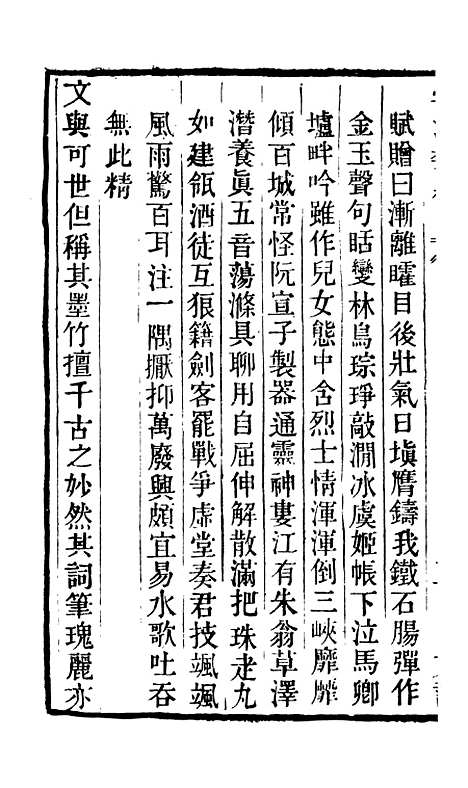 賦贈曰漸離矐目後壯氣日塡膺鑄我鐵石腸彈作
金玉聲句眒鸞林鳥琮琤敲澗冰虞姬帳下泣馬卿
壚畔吟雖作兒女態中含烈士情渾渾倒三峽靡靡
傾百城常怪阮宣子製器通靈神婁江有朱翁草澤
潛養眞五音蕩滌具聊用自屈伸解散滿把珠走丸
如建瓴酒徒互狼籍劍客罷戰爭虛堂奏君技颯颯
風雨驚百耳注一隅擫抑萬廢興頗宜易水歌吐吞
無此精
文與可世但稱其墨竹擅千古之妙然其詞筆瑰麗亦